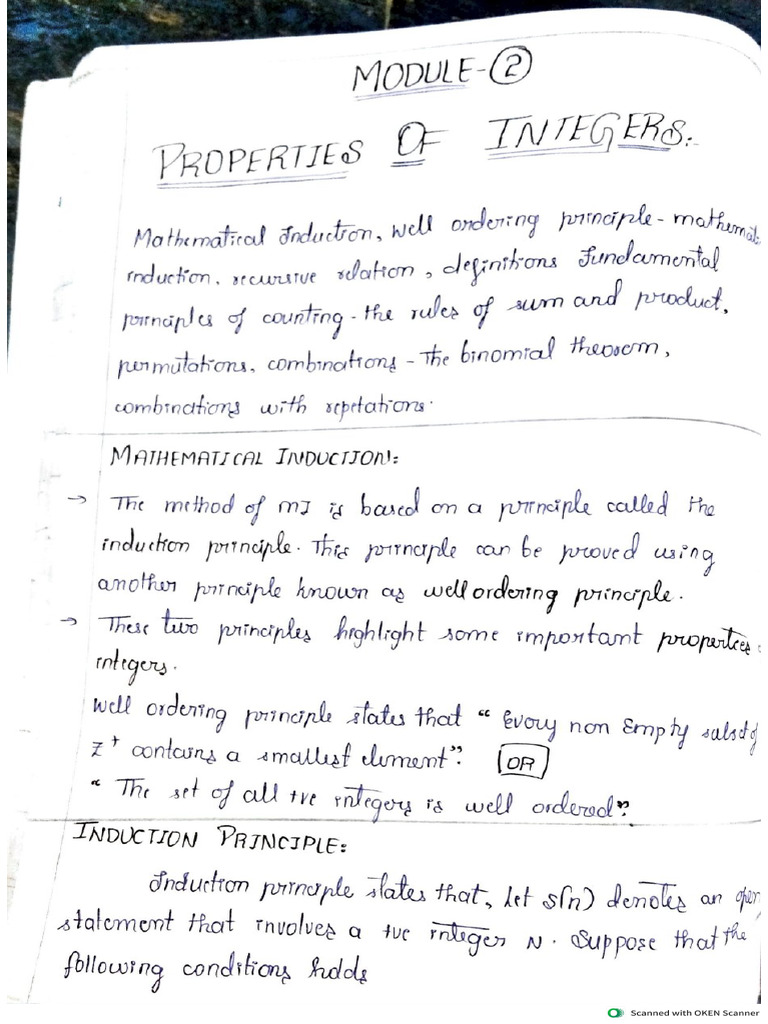 MODULE-②
PROPERTIES OF INTEGERS:-
Mathematical Induction, well ordering principle - mathemat
induction, recursive relation, definitions fundamental
principles of counting - the rules of sum and product,
permutations, combinations - The binomial theorem,
combinations with repetations.
MATHEMATICAL INDUCTION:
→ The method of MI is based on a principle called the
induction principle. This principle can be proved using
another principle known as well ordering principle.
→ These two principles highlight some important properties
integers.
Well ordering principle states that " Every non Empty subset of
Z⁺ contains a smallest element". OR
" The set of all +ve integers is well ordered".
INDUCTION PRINCIPLE:
Induction principle states that, let S(n) denotes an open
statement that involves a +ve integer N. Suppose that the
following conditions holds
Scanned with OKEN Scanner